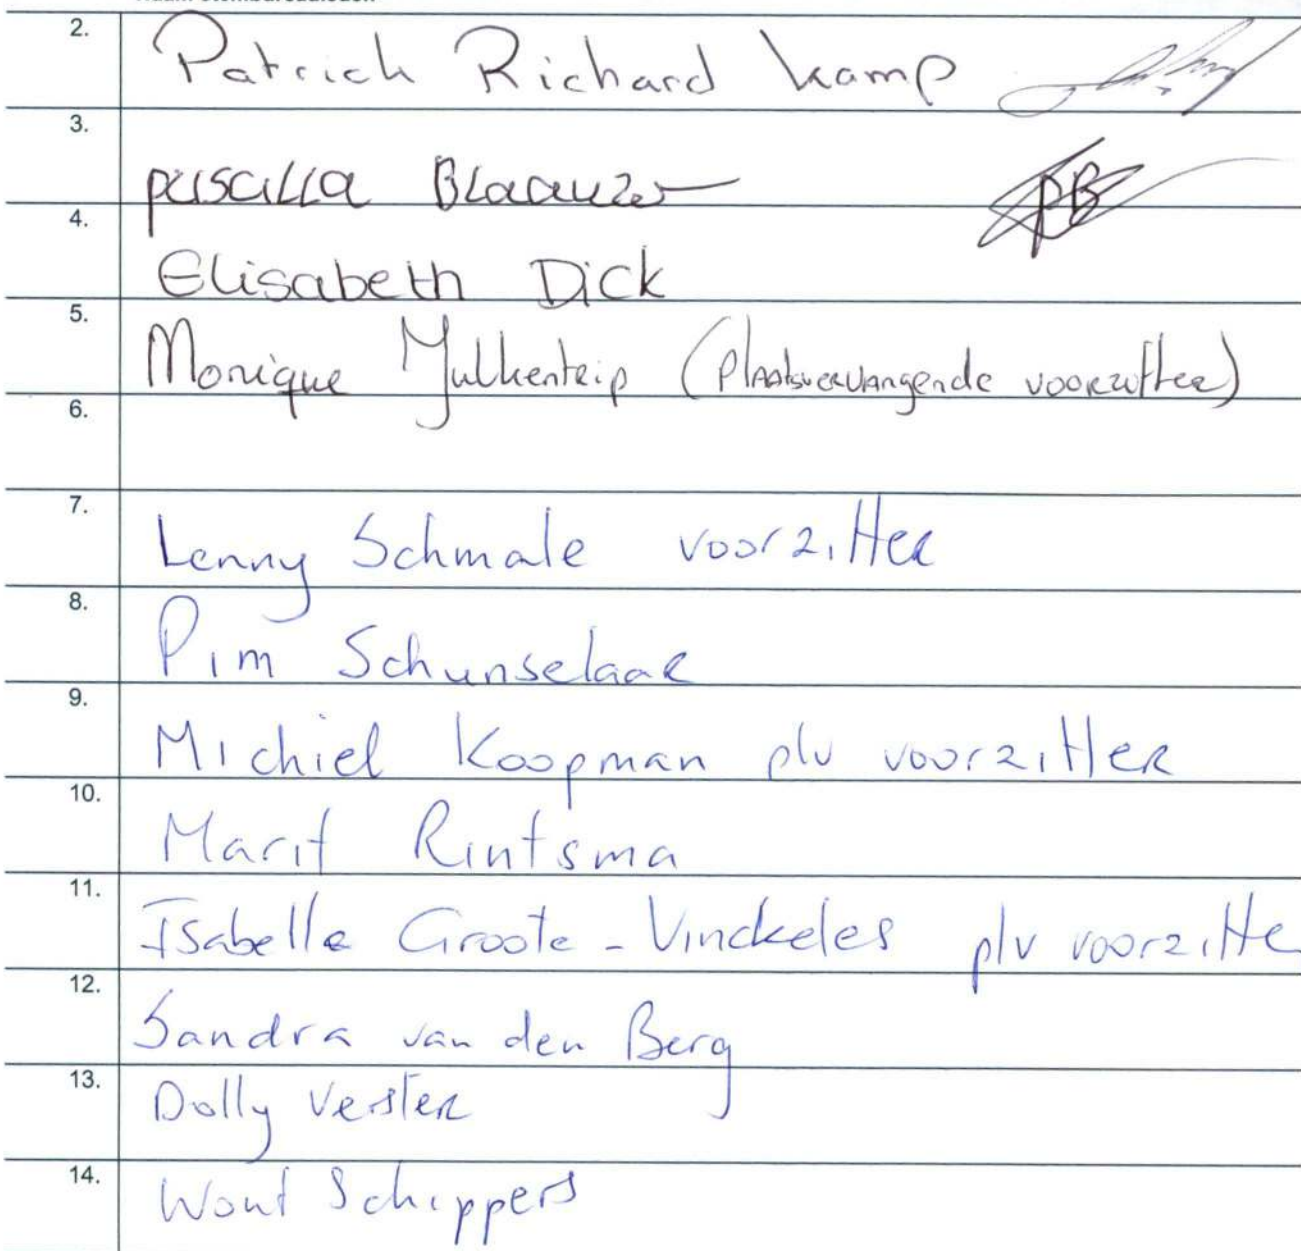 2. Patrick Richard Kamp
3. priscilla Blaauwer
4. Elisabeth Dick
5. Monique (Plaatsvervangende voorzitter)
6.
7. Lenny Schmale voorzitter
8. Pim Schunselaar
9. Michiel Koopman plv voorzitter
10. Marit Rintsma
11. Isabelle Groote-Vinckeles plv voorzitte
12. Sandra van den Berg
13. Dolly Verster
14. Wout Schippers